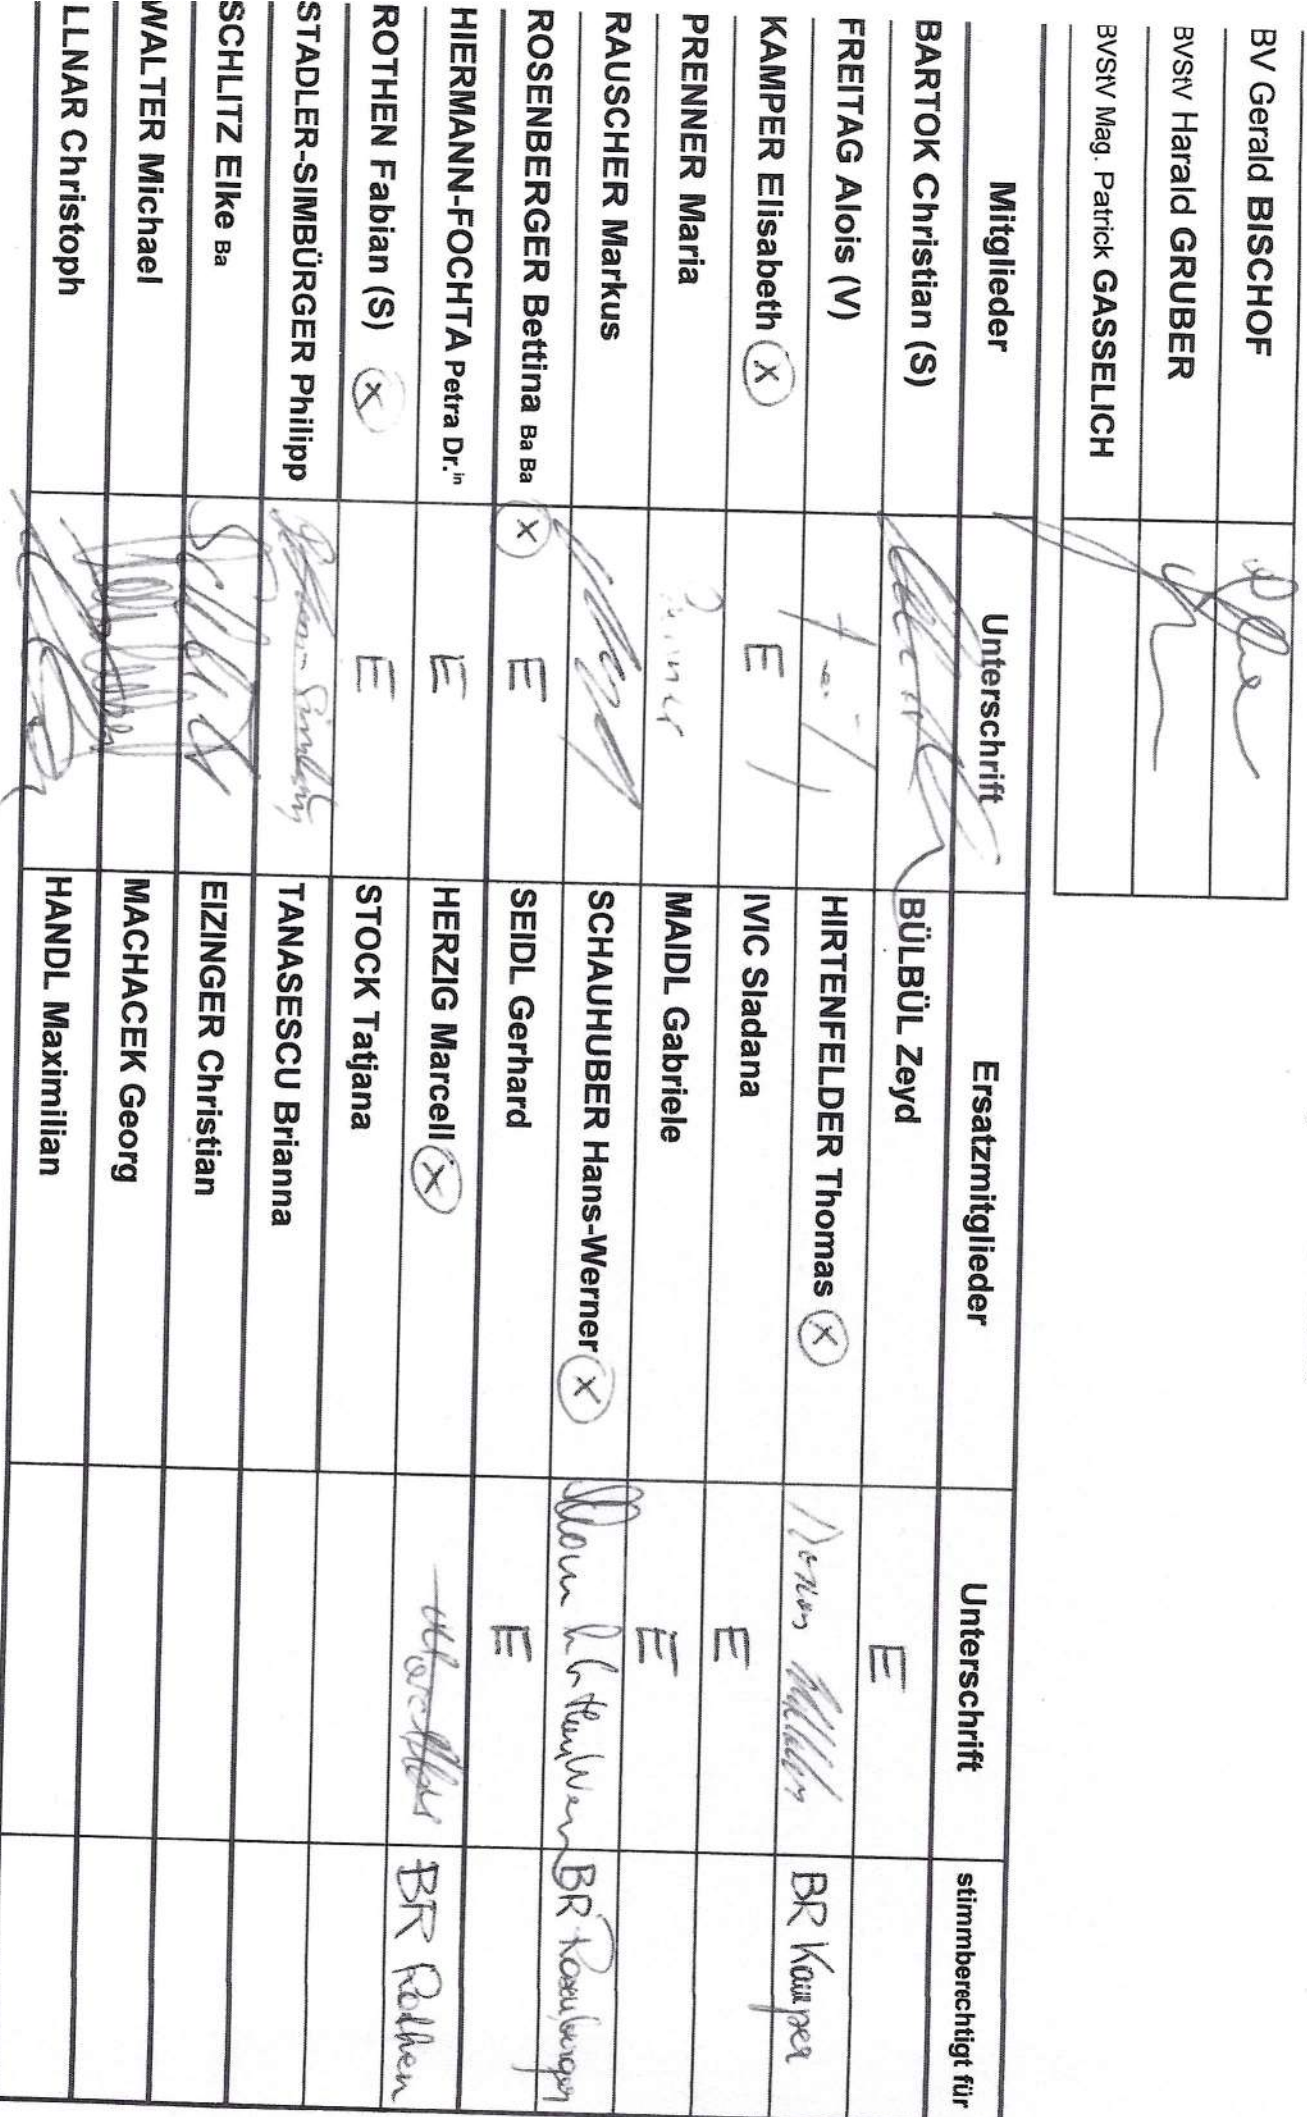 BV Gerald BISCHOF
BVStV Harald GRUBER
BVStV Mag. Patrick GASSELICH
Mitglieder Unterschrift Ersatzmitglieder Unterschrift stimmberechtigt für
BARTOK Christian (S) BÜLBÜL Zeyd E
FREITAG Alois (V) HIRTENFELDER Thomas X BR Kamper
KAMPER Elisabeth X E IVIC Sladana E
PRENNER Maria MAIDL Gabriele E
RAUSCHER Markus SCHAUHUBER Hans-Werner X BR Rosenberger
ROSENBERGER Bettina Ba Ba X E SEIDL Gerhard E
HIERMANN-FOCHTA Petra Dr.in E HERZIG Marcell X BR Rothen
ROTHEN Fabian (S) X E STOCK Tatjana
STADLER-SIMBÜRGER Philipp TANASESCU Brianna
SCHLITZ Elke Ba EIZINGER Christian
WALTER Michael MACHACEK Georg
LLNAR Christoph HANDL Maximilian